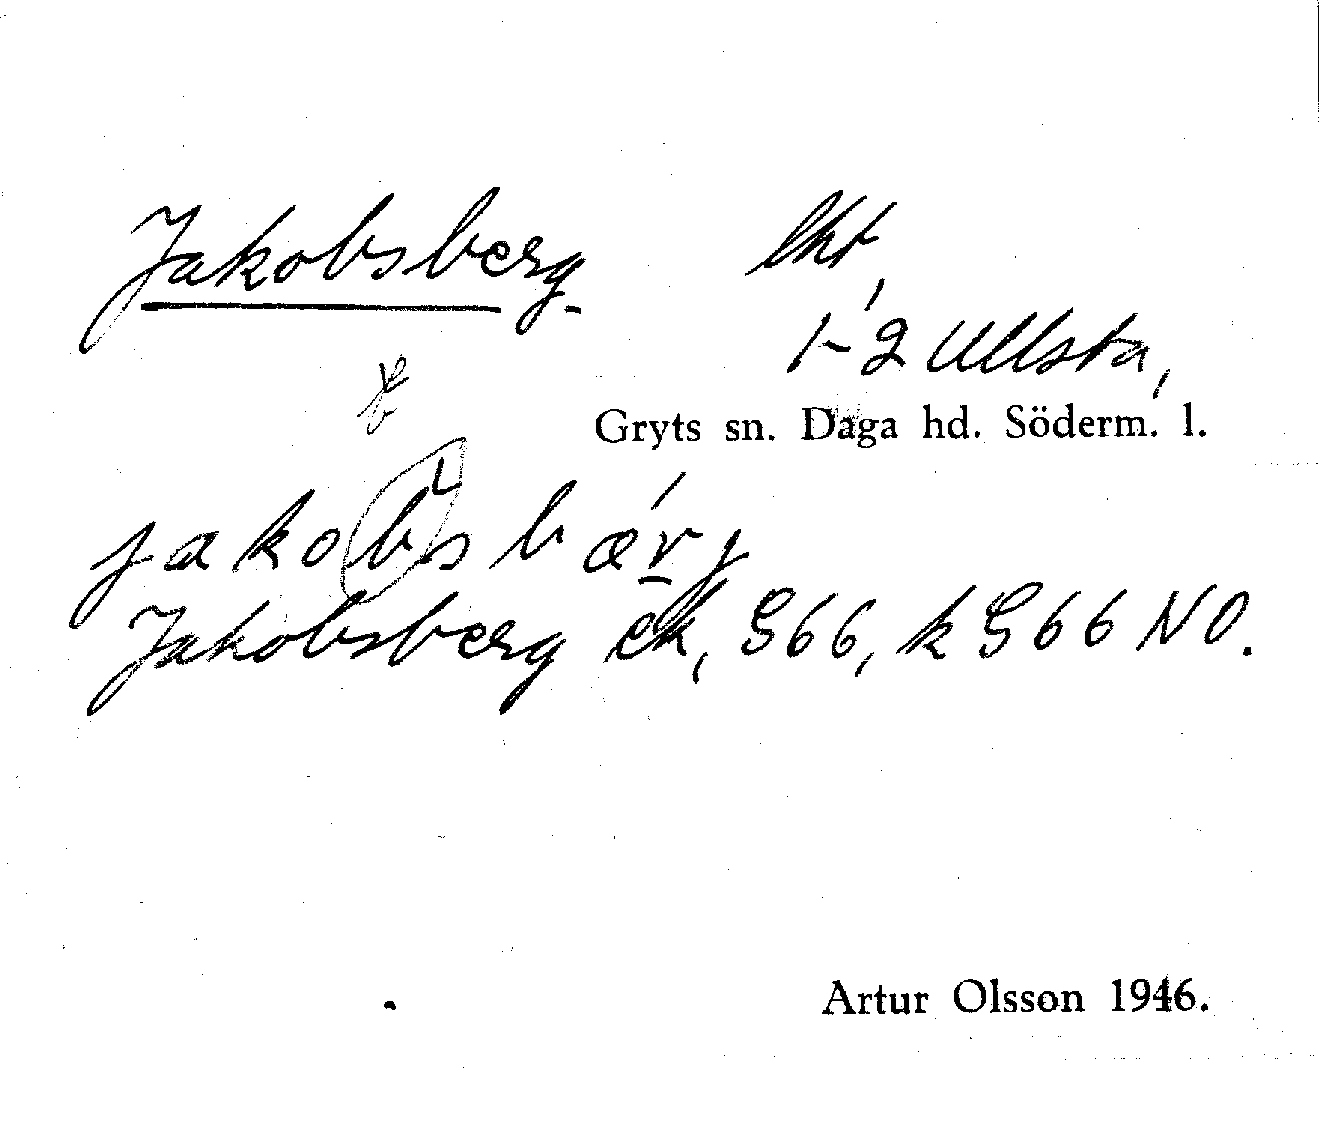 Jakobsberg. lht,
1-2 Ullsta,
Gryts sn. Daga hd. Söderm. l.
jakobsbærj
Jakobsberg ek, G66, k G66 NO.
Artur Olsson 1946.